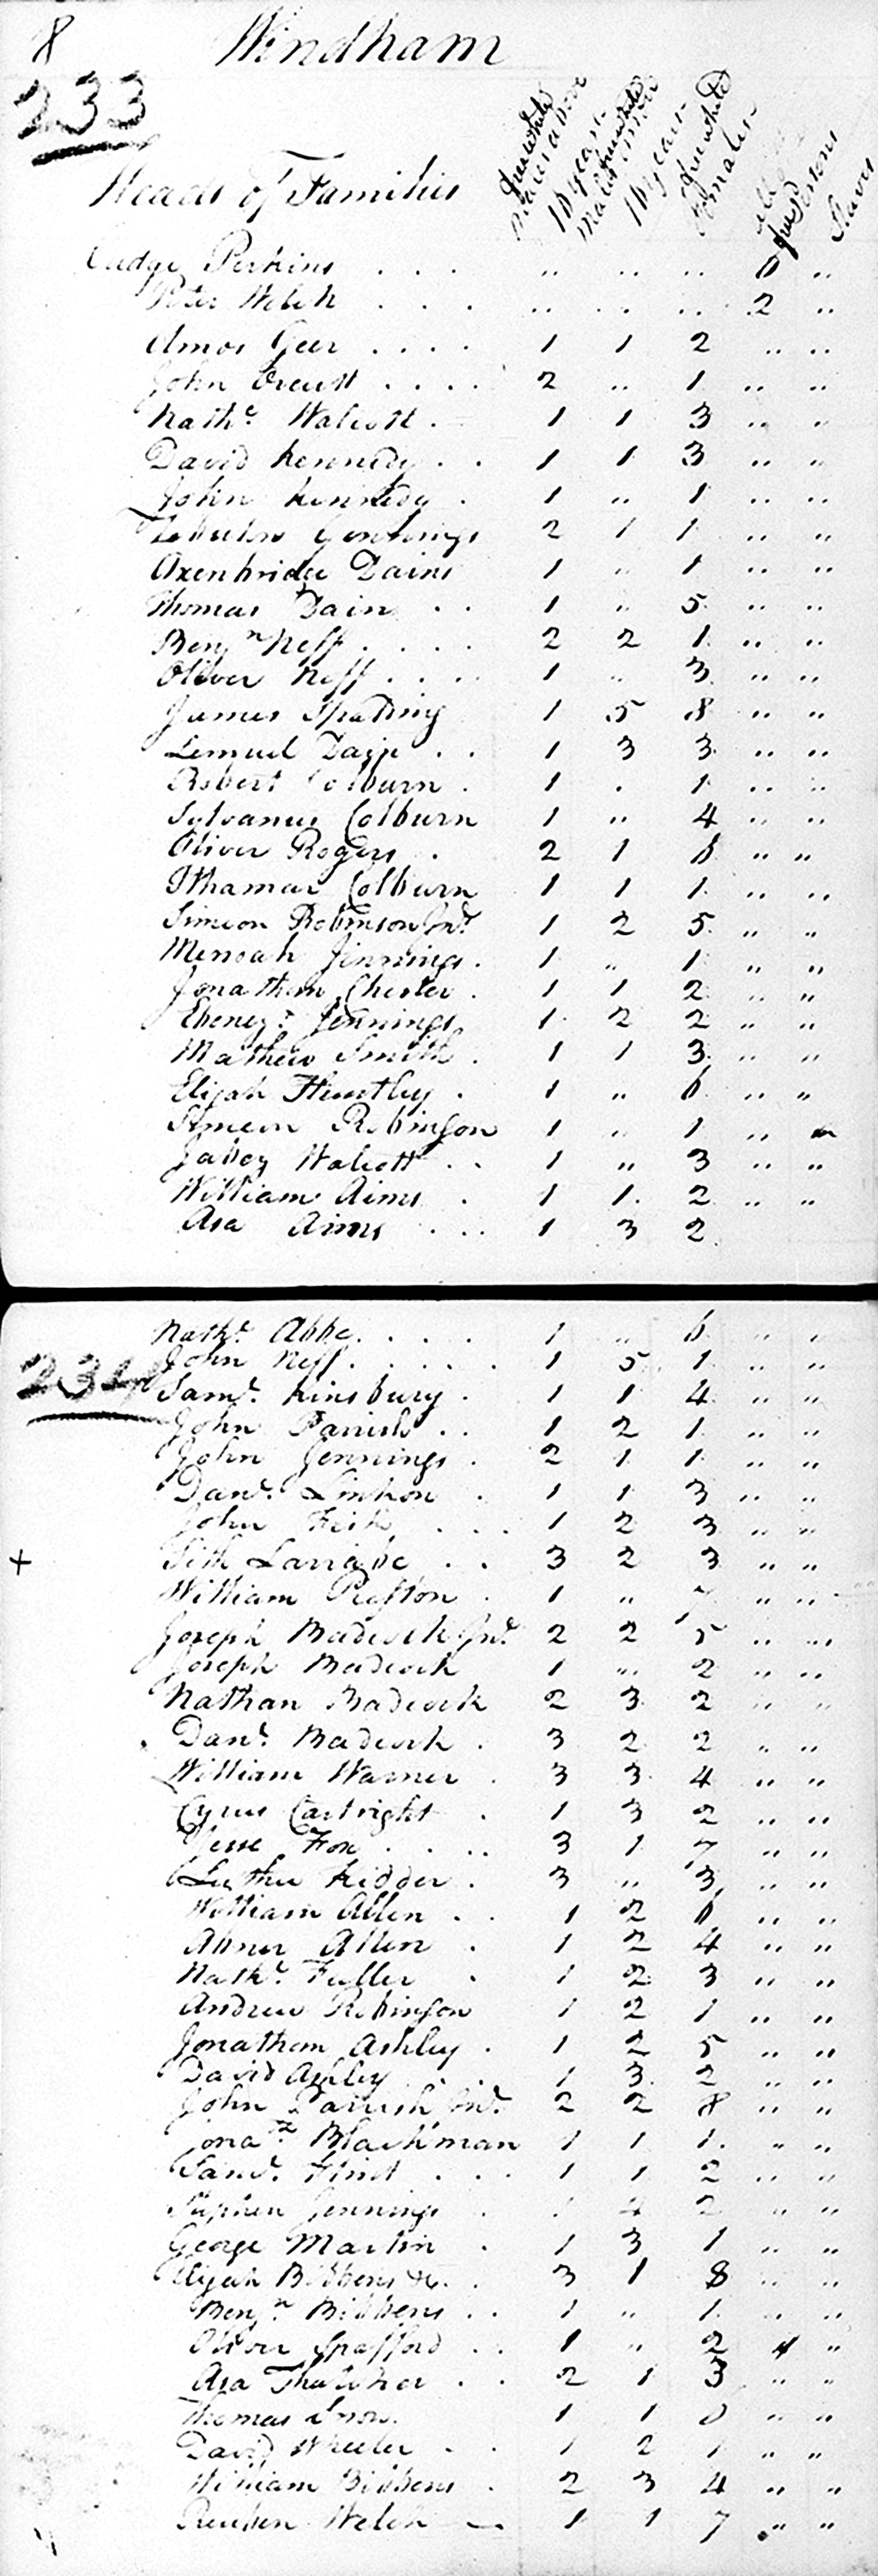 8 Windham
233
free white males above 16 years
free white males under 16 years
free white females
all free Persons
Slaves
Heads of Families
Cudge Perkins . . . " " " 6 "
Peter Welch . . . " " " 2 "
Amos Geer . . . . 1 1 2 " "
John . . . . 2 " 1 " "
Nath.l Walcott . 1 1 3 " "
David Kennedy . . 1 1 3 " "
John Kennedy . 1 " 1 " "
Zebulon Jennings 2 1 1 " "
Axenbridge Dains 1 " 1 " "
Thomas Dain . . 1 " 5 " "
Benj.n Neff . . . . 2 2 1 " "
Oliver Neff . . . . 1 " 3 " "
James Spalding 1 5 8 " "
Lemuel . . 1 3 3 " "
Robert Colburn . 1 . 1 " "
Sylvanus Colburn 1 " 4 " "
Oliver Rogers . 2 1 6 " "
Ithamar Colburn 1 1 1 " "
Simeon Robinson Jnr. 1 2 5 " "
Menoah Jennings . 1 " 1 " "
Jonathan Chester . 1 1 2 " "
Ebenez.r Jennings 1 2 2 " "
Mathew Smith . 1 1 3 " "
Elijah Huntley . 1 " 6 " "
Simeon Robinson 1 " 1 " "
Jabez Walcott . . 1 " 3 " "
William Aims . 1 1 2 " "
Asa Aims . . . 1 3 2
Nath.l Abbe . . . . 1 " 6 " "
234
John Neff . . . . . 1 5 1 " "
Sam.l Kinsbury . 1 1 4 " "
John Parish . . 1 2 1 " "
John Jennings . 2 1 1 " "
Dan.l Linkon . 1 1 3 " "
John . . . 1 2 3 " "
+ Seth Larrabe . . 3 2 3 " "
William Preston . 1 " " "
Joseph Badcock Jnr. 2 2 5 " "
Joseph Badcock 1 " 2 " "
Nathan Badcock 2 3 2 " "
Dan.l Badcock . 3 2 2 " "
William Warner . 3 3 4 " "
Cyrus Cartright . 1 3 2 " "
Jesse Fox . . . . 3 1 7 " "
Luther Kidder . 3 " 3 " "
William Allen . . 1 2 6 " "
Abner Allen . 1 2 4 " "
Nath.l Fuller . 1 2 3 " "
Andrew Robinson 1 2 1 " "
Jonathan Ashley . 1 2 5 " "
David Ashley . . 1 3 2 " "
John Parrish Jnr. 2 2 8 " "
Jona.n Blackman 1 1 1 " "
Sam.l Flint . . . 1 1 2 " "
Stephen Jennings . 1 4 2 " "
George Martin . 1 3 1 " "
Elijah Bibbens &c. . 3 1 8 " "
Benj.n Bibbens . . 1 " 1 " "
Oliver Spafford . . 1 " 2 4 "
Asa Thatcher . . 2 1 3 " "
Thomas Snow . 1 1 " "
David Wheeler . . 1 2 1 " "
William Bibbens . 2 3 4 " "
Reuben Welch — 1 1 7 " "